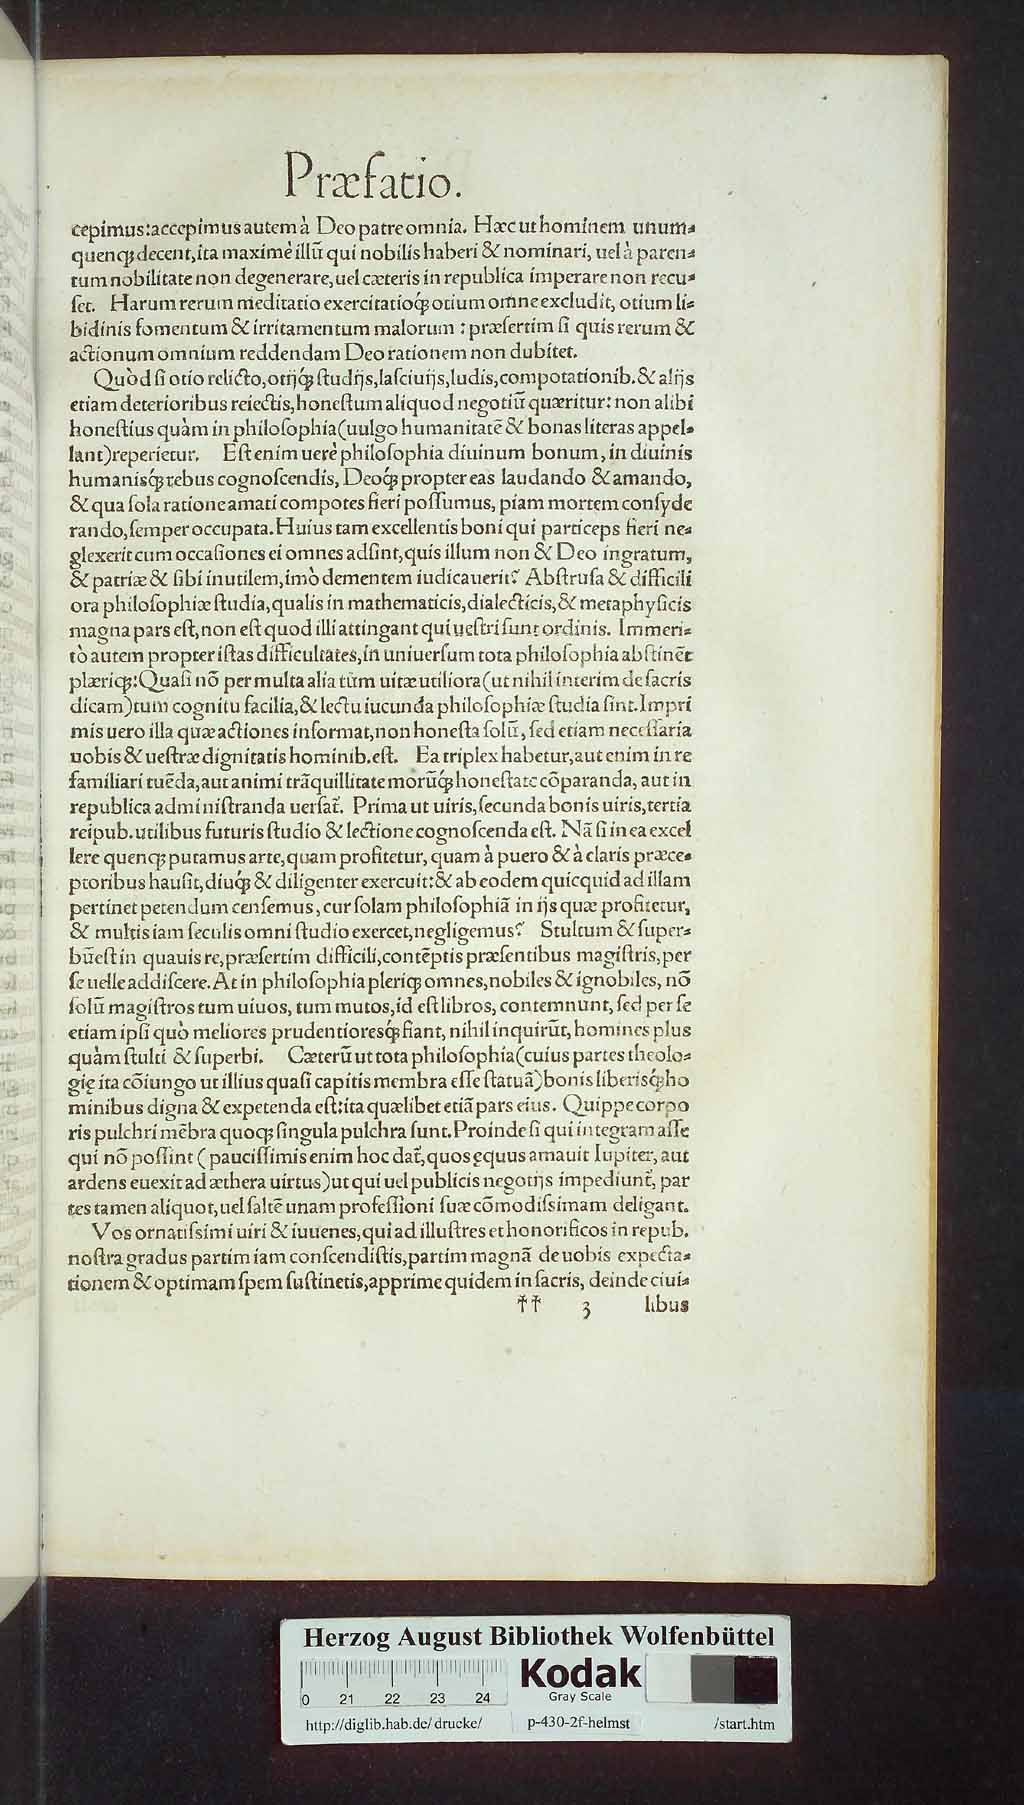 Præfatio.
cepimus: accepimus autem à Deo patre omnia. Hæc ut hominem unum⸗
quenq; decent, ita maximè illũ qui nobilis haberi & nominari, uel à paren⸗
tum nobilitate non degenerare, uel cæteris in republica imperare non recu⸗
ſet. Harum rerum meditatio exercitatioq́; otium omne excludit, otium li⸗
bidinis fomentum & irritamentum malorum : præſertim ſi quis rerum &
actionum omnium reddendam Deo rationem non dubitet.
Quòd ſi otio relicto, otijq́; ſtudijs, laſciuijs, ludis, compotationib. & alijs
etiam deterioribus reiectis, honeſtum aliquod negotiũ quæritur: non alibi
honeſtius quàm in philoſophia (uulgo humanitatẽ & bonas literas appel⸗
lant) reperietur. Eſt enim uerè philoſophia diuinum bonum, in diuinis
humanisq́; rebus cognoſcendis, Deoq́; propter eas laudando & amando,
& qua ſola ratione amati compotes fieri poſſumus, piam mortem conſyde
rando, ſemper occupata. Huius tam excellentis boni qui particeps fieri ne⸗
glexerit cum occaſiones ei omnes adſint, quis illum non & Deo ingratum,
& patriæ & ſibi inutilem, imò dementem iudicauerit? Abſtruſa & difficili
ora philoſophiæ ſtudia, qualis in mathematicis, dialecticis, & metaphyſicis
magna pars eſt, non eſt quod illi attingant qui ueſtri ſunt ordinis. Immeri⸗
tò autem propter iſtas difficultates, in uniuerſum tota philoſophia abſtinẽt
plæriq;: Quaſi nõ per multa alia tùm uitæ utiliora (ut nihil interim de ſacris
dicam) tum cognitu facilia, & lectu iucunda philoſophiæ ſtudia ſint. Impri
mis uero illa quæ actiones informat, non honeſta ſolũ, ſed etiam neceſſaria
uobis & ueſtræ dignitatis hominib. eſt. Ea triplex habetur, aut enim in re
familiari tuẽda, aut animi trãquillitate morũq́; honeſtate cõparanda, aut in
republica adminiſtranda uerſat̃. Prima ut uiris, ſecunda bonis uiris, tertia
reipub. utilibus futuris ſtudio & lectione cognoſcenda eſt. Nã ſi in ea excel
lere quenq; putamus arte, quam profitetur, quam à puero & à claris præce⸗
ptoribus hauſit, diuq́; & diligenter exercuit: & ab eodem quicquid ad illam
pertinet petendum cenſemus, cur ſolam philoſophiã in ijs quæ profitetur,
& multis iam ſeculis omni ſtudio exercet, negligemus? Stultum & ſuper⸗
bũ eſt in quauis re, præſertim difficili, contẽptis præſentibus magiſtris, per
ſe uelle addiſcere. At in philoſophia pleriq; omnes, nobiles & ignobiles, nõ
ſolũ magiſtros tum uiuos, tum mutos, id eſt libros, contemnunt, ſed per ſe
etiam ipſi quò meliores prudentioresq́; fiant, nihil inquirũt, homines plus
quàm ſtulti & ſuperbi. Cæterũ ut tota philoſophia (cuius partes theolo⸗
gię ita cõiungo ut illius quaſi capitis membra eſſe ſtatuã) bonis liberisq́; ho
minibus digna & expetenda eſt: ita quælibet etiã pars eius. Quippe corpo
ris pulchri mẽbra quoq; ſingula pulchra ſunt. Proinde ſi qui integram aſſe
qui nõ poſſint (pauciſſimis enim hoc dat̃, quos ęquus amauit Iupiter, aut
ardens euexit ad æthera uirtus) ut qui uel publicis negotijs impediunt̃, par
tes tamen aliquot, uel ſaltẽ unam profeſſioni ſuæ cõmodiſsimam deligant.
Vos ornatiſsimi uiri & iuuenes, qui ad illuſtres et honorificos in repub.
noſtra gradus partim iam conſcendiſtis, partim magnã de uobis expecta⸗
tionem & optimam ſpem ſuſtinetis, apprime quidem in ſacris, deinde ciui⸗
†† 3 libus
Herzog August Bibliothek Wolfenbüttel
0 21 22 23 24
Kodak
Gray Scale
http://diglib.hab.de/drucke/ p-430-2f-helmst /start.htm